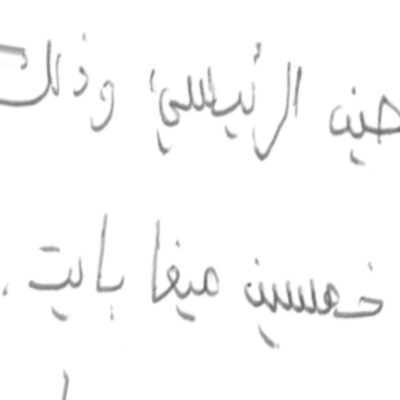 الرئيسي، وذلك
خمسين ميغا بايت.